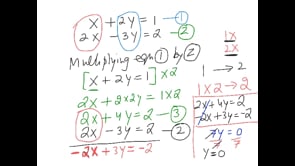 x + 2y = 1 — ①
2x - 3y = 2 — ②
Multiplying eqn ① by 2
[x + 2y = 1] x2
2x + 2x2y = 1x2
2x + 4y = 2 — ③
2x - 3y = 2 — ②
-2x + 3y = -2
1x
2x
1 → 2
1x2 → 2
2x + 4y = 2
-2x + 3y = -2
7y = 0
7 7
y = 0